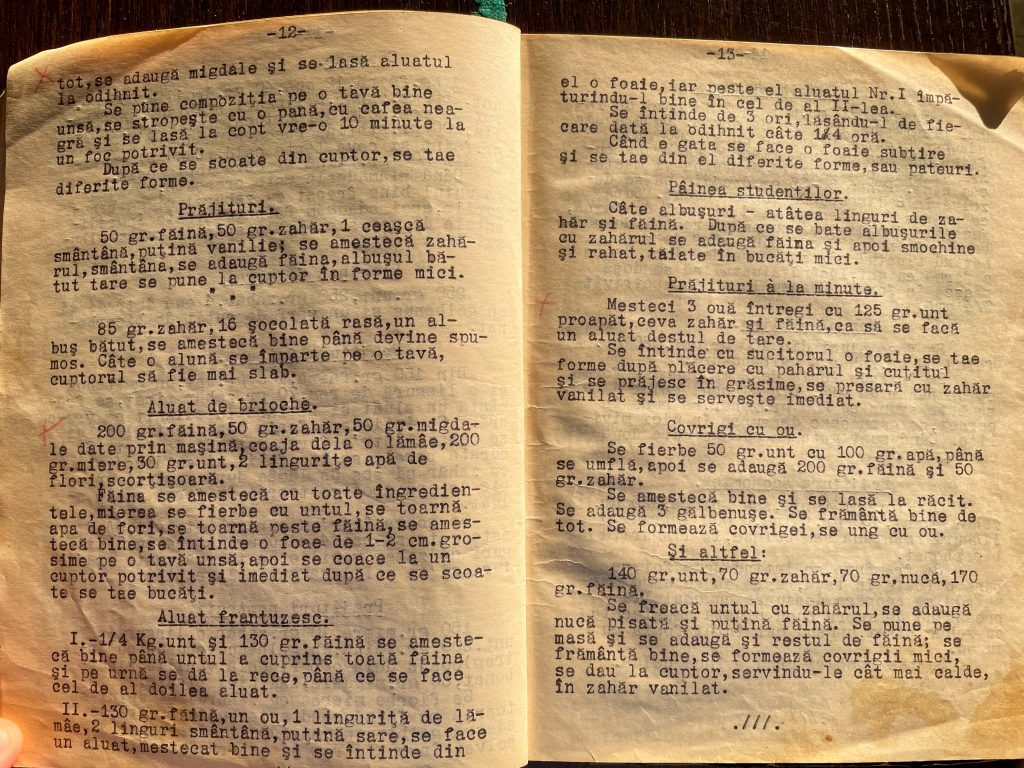 -12-
tot,se adaugă migdale şi se lasă aluatul
la odihnit.
Se pune compoziţia pe o tavă bine
unsă,se stropeşte cu o pană,cu cafea nea-
gră şi se lasă la copt vre-o 10 minute la
un foc potrivit.
După ce se scoate din cuptor,se tae
diferite forme.
Prăjituri.
50 gr.făină,50 gr.zahăr,1 ceaşcă
smântână,puţină vanilie; se amestecă zahă-
rul,smântâna,se adaugă făina,albuşul bă-
tut tare se pune la cuptor în forme mici.
* * *
85 gr.zahăr,16 şocolată rasă,un al-
buş bătut,se amestecă bine până devine spu-
mos. Câte o alună se împarte pe o tavă,
cuptorul să fie mai slab.
Aluat de brioche.
200 gr.făină,50 gr.zahăr,50 gr.migda-
le date prin maşină,coaja dela o lămâe,200
gr.miere,30 gr.unt,2 linguriţe apă de
flori,scorţişoară.
Făina se amestecă cu toate îngredien-
tele,mierea se fierbe cu untul,se toarnă
apa de fori,se toarnă peste făină,se ames-
tecă bine,se întinde o foae de 1-2 cm.gro-
sime pe o tavă unsă,apoi se coace la un
cuptor potrivit şi imediat după ce se scoa-
te se tae bucăţi.
Aluat franţuzesc.
I.-1/4 Kg.unt şi 130 gr.făină se ameste-
că bine până untul a cuprins toată făina
şi pe urnă se dă la rece,până ce se face
cel de al doilea aluat.
II.-130 gr.făină,un ou,1 linguriţă de lă-
mâe,2 linguri smântână,puţină sare,se face
un aluat,mestecat bine şi se întinde din
-13-
el o foaie,iar peste el aluatul Nr.I împă-
turindu-l bine în cel de al II-lea.
Se întinde de 3 ori,lăsându-l de fie-
care dată la odihnit câte 1/4 oră.
Când e gata se face o foaie subţire
şi se tae din el diferite forme,sau pateuri.
Pâinea studenţilor.
Câte albuşuri - atâtea linguri de za-
hăr şi făină. După ce se bate albuşurile
cu zahărul se adaugă făina şi apoi smochine
şi rahat,tăiate în bucăţi mici.
Prăjituri à la minute.
Mesteci 3 ouă întregi cu 125 gr.unt
proapăt,ceva zahăr şi făină,ca să se facă
un aluat destul de tare.
Se întinde cu sucitorul o foaie,se tae
forme după plăcere cu paharul şi cuţitul
şi se prăjesc în grăsime,se presară cu zahăr
vanilat şi se serveşte imediat.
Covrigi cu ou.
Se fierbe 50 gr.unt cu 100 gr.apă,până
se umflă,apoi se adaugă 200 gr.făină şi 50
gr.zahăr.
Se amestecă bine şi se lasă la răcit.
Se adaugă 3 gălbenuşe. Se frământă bine de
tot. Se formează covrigei,se ung cu ou.
Şi altfel:
140 gr.unt,70 gr.zahăr,70 gr.nucă,170
gr.făină.
Se freacă untul cu zahărul,se adaugă
nucă pisată şi puţină făină. Se pune pe
masă şi se adaugă şi restul de făină; se
frământă bine,se formează covrigii mici,
se dau la cuptor,servindu-le cât mai calde,
în zahăr vanilat.
.///.